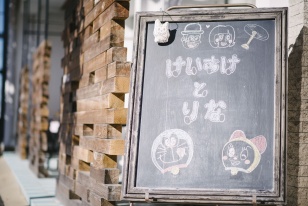 けいすけ
と
りな